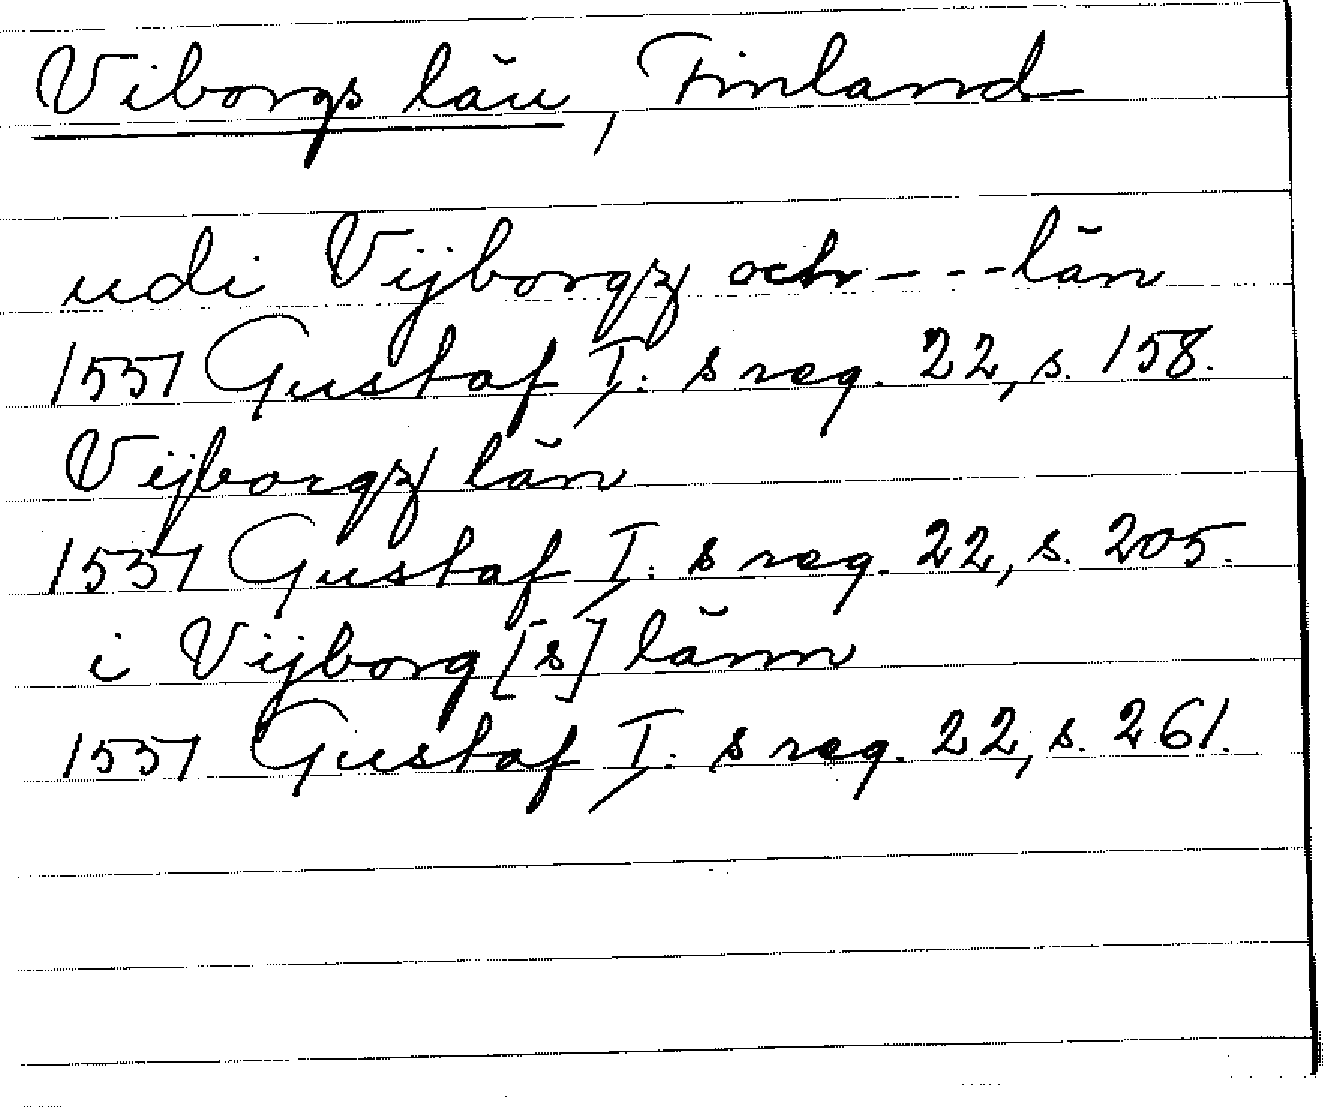 Viborgs län, Finland
udi Vijborgz och - - - län
1551 Gustaf I:s reg. 22, s. 158.
Vijborgz län
1551 Gustaf I:s reg. 22, s. 205.
i Vijborg [s] länn
1551 Gustaf I:s reg. 22, s. 261.